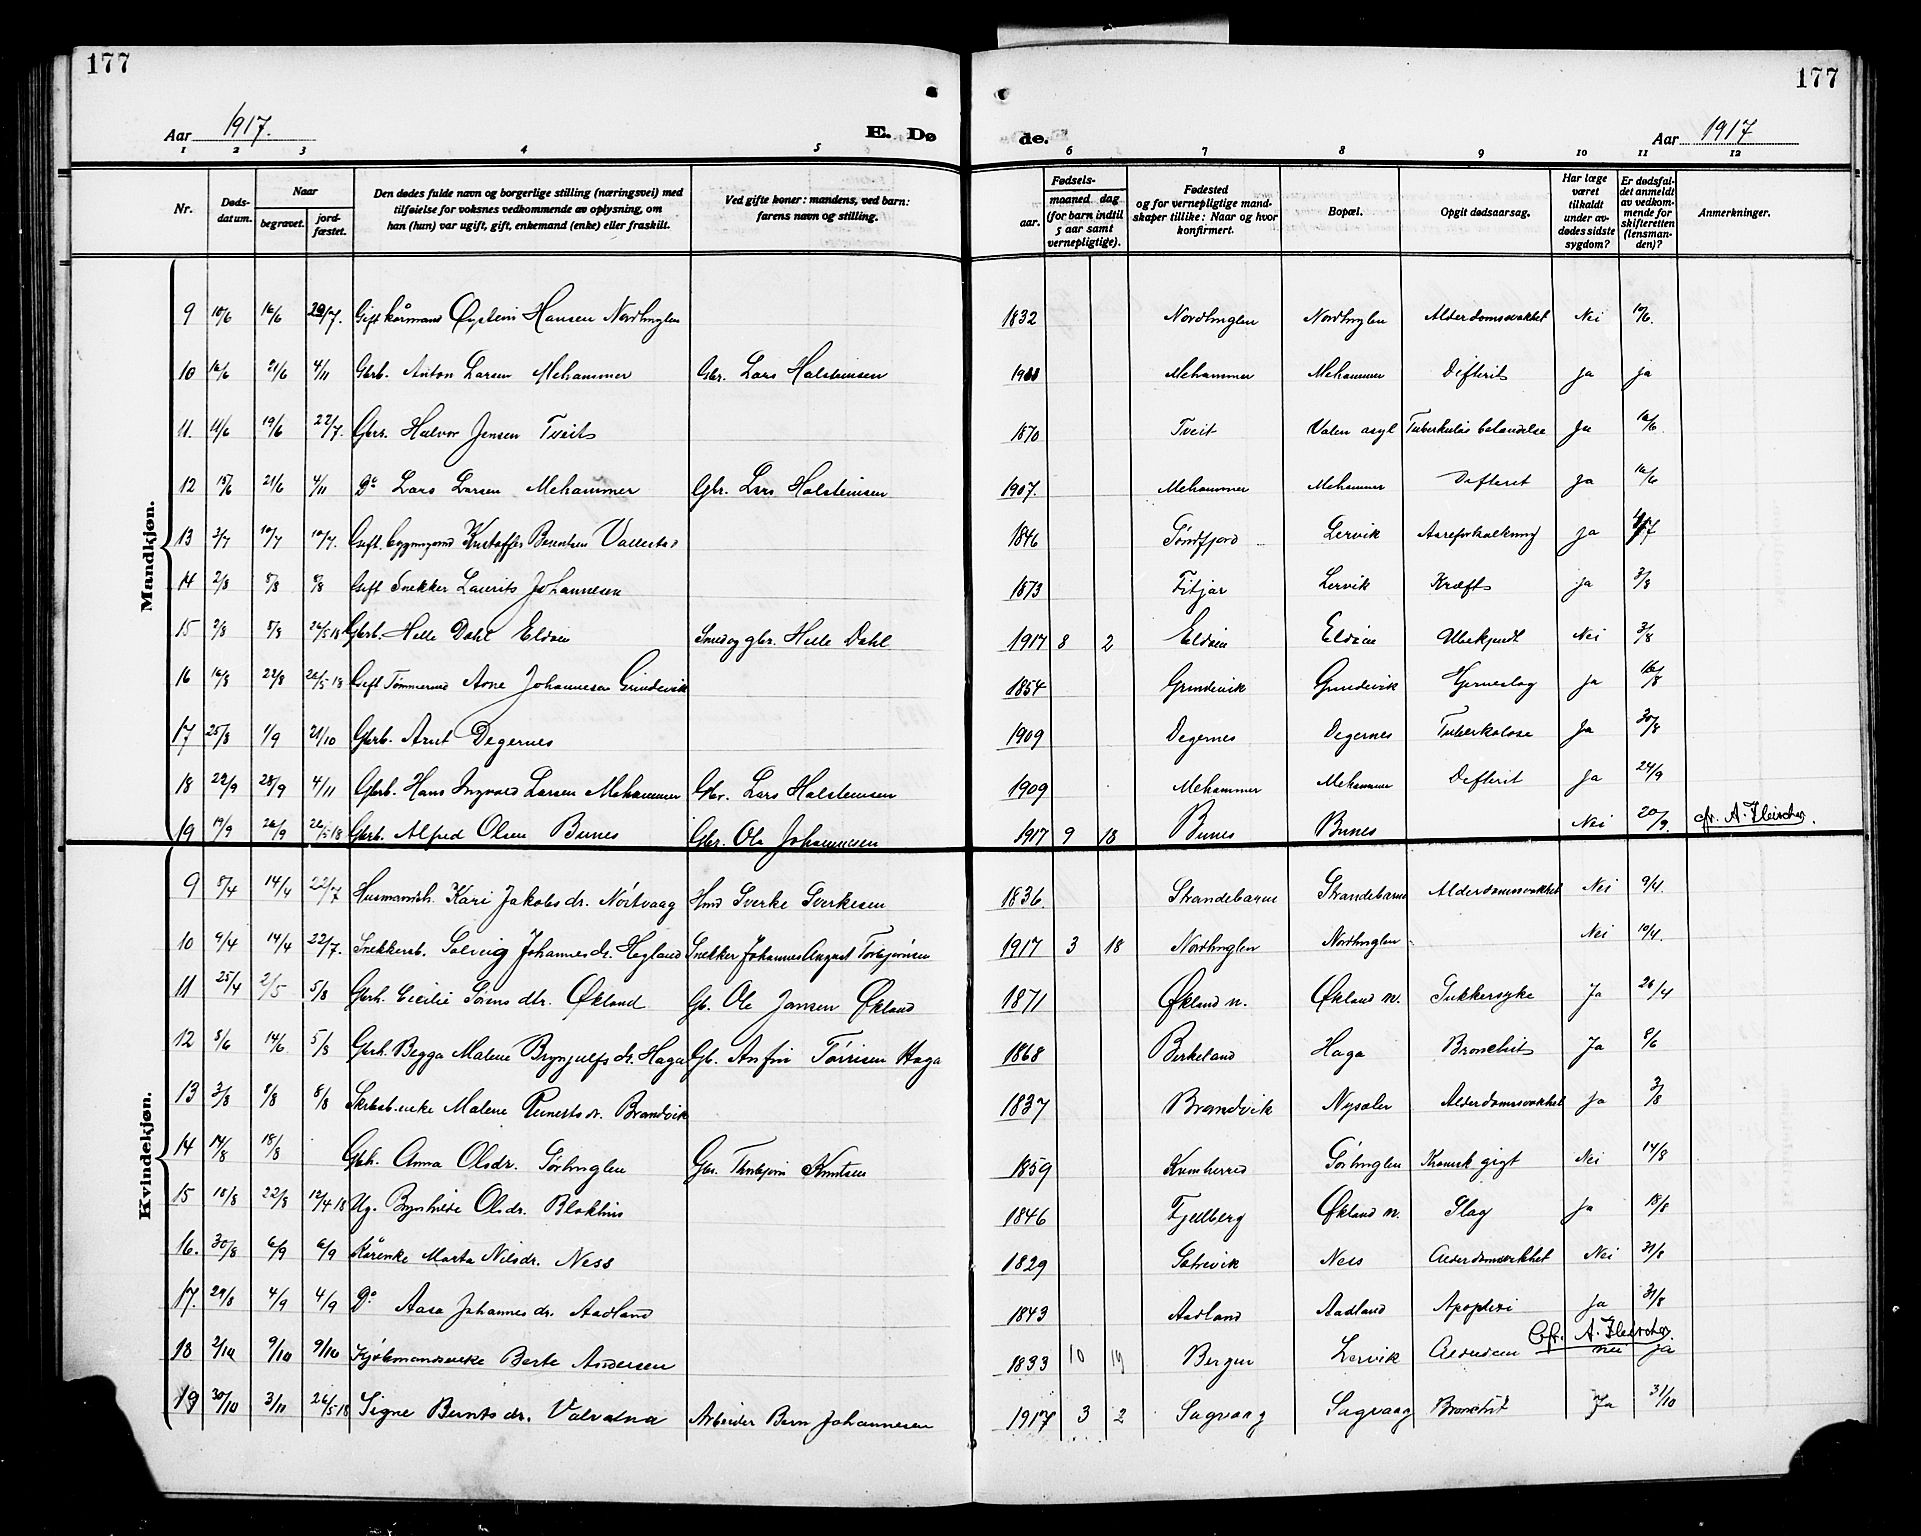 177
177
Aar 1917.
E. Dø
de.
Aar 1917
1 2 3 4 5 6 7 8 9 10 11 12
Nr.
Døds-
datum.
Naar
begravet.
jord-
fæstet.
Den dødes fulde navn og borgerlige stilling (næringsvei) med
tilføielse for voksnes vedkommende av oplysning, om
han (hun) var ugift, gift, enkemand (enke) eller fraskilt.
Ved gifte koner: mandens, ved barn:
farens navn og stilling.
Fødsels-
aar.
maaned dag
(for barn indtil
5 aar samt
vernepligtige).
Fødested
og for vernepligtige mand-
skaper tillike: Naar og hvor
konfirmert.
Bopæl.
Opgit dødsaarsag.
Har læge
været
tilkaldt
under av-
dødes sidste
sygdom?
Er dødsfal-
det anmeldt
av vedkom-
mende for
skifteretten
(lensman-
den)?
Anmerkninger.
Mandkjøn.
9 10/6 16/6 Gift kårmand Øystein Hansen Nordhuglen 1832 Nordhuglen Nordhuglen Alderdomssvakhet Nei 10/6.
10 16/6 21/6 4/11 Gbrb. Anton Larsen Mehammer Gbr. Lars Halsteinsen Mehammer Mehammer Difterit ja ja
11. 19/6 22/7. Gbr. Halvor Jensen Tveit 1870 Tveit Valen asyl Tuberkuløs Ja 16/6.
12 15/6 21/6 4/11 Do Lars Larsen Mehammer Gbr. Lars Halsteinsen 1907. Mehammer Mehammer Difterit Ja 16/6
13 3/7 10/7 10/7. Gift Berentsen Vallestad 1846 Søndfjord Lervik Aareforkalkning ja
14 2/8 8/8 8/8 Gift Snekker Laurits Johannesen 1873 Fitjar Lervik Kræft ja 3/8
15 2/8 8/8 26/5 18 Gbrb. Helle Dahl Eldøen Smed og gbr. Helle Dahl 1917 8 2 Eldøen Eldøen Ubekjendt Nei 3/8
16 16/8 22/8 26/5 18 Gift Tømmermd Arne Johannesen Grindevik 1854 Grindevik Grindevik Hjerneslag Ja 16/8
17 25/8 1/9 21/10 Gbrb. Arnt Degernes 1909 Degernes Degernes Tuberkolose Ja 30/8
18 22/9 28/9 4/11 Gbrb. Hans Ingvald Larsen Mehammer Gbr. Lars Halsteinsen 1909 Mehammer Mehammer Difterit Ja 24/9
19 19/9 26/9 26/5 18 Gbrb. Alfred Olsen Bunes Gbr. Ole Johannesen 1917 9 18 Bunes Bunes Nei 20/9. cfr. A. Fleischer.
Kvindekjøn.
9 8/4 14/4 22/7 Kari Jakobsdr. Nøitvaag Hmd Sverke Sverkesen 1836. Strandebarm Strandebarm Alderdomssvakhet Nei 9/4.
10 9/4 14/4 22/7. Snekkersb. Solveig Johannesdr. Hegland Snekker Johannes August Torbjørnsen 1917 3 18 Nordhuglen Nordhuglen Nei 10/4.
11 25/4 2/5 5/8 Gbrh. Cecilie Sørensdtr. Økland Gb. Ole Jansen Økland 1871 Økland n. Økland n. Sukkersyke Ja 26/4
12 8/6 14/6 5/8 Gbrh. Begga Malene Brynjulfsdr. Haga Gb. Anfin Tørrisen Haga 1868 Birkeland Haga Bronchit Ja 8/6
13 3/8 8/8 8/8 Malene Reinertsdr. Brandvik 1837 Brandvik Nysæter Alderdomssvakhet Ja 3/8
14 14/8 18/8 Gbh. Anna Olsdr. Sørhuglen Gbr. Thorbjørn Knutsen 1859 Kvinherred Sørhuglen Kronisk gigt Nei 14/8
15 18/8 22/8 12/4 18 Ug. Brynhilde Olsdr. Blokhus 1846 Fjelberg Økland n. Slag Ja 18/8
16. 30/8 6/9 6/9 Kårenke Marta Nilsdr. Ness 1829 Sætrevik Ness Alderdomssvakhet Nei 31/8
17. 29/8 4/9 4/9 Do Aasa Johannesdr. Aadland 1843 Aadland Aadland Apoplexi Ja 31/8
18 2/10 9/10 9/10 Kjøbmandsenke Berte Andersen 1833 10 19 Bergen Lervik Alderdom Cfr. A. Fleischer. nei ja
19 30/10 3/11 26/5 18 Signe Berntsdr. Valvatna Arbeider Bern Johannesen 1917 3 2 Sagvaag Sagvaag Bronchit Ja 31/10